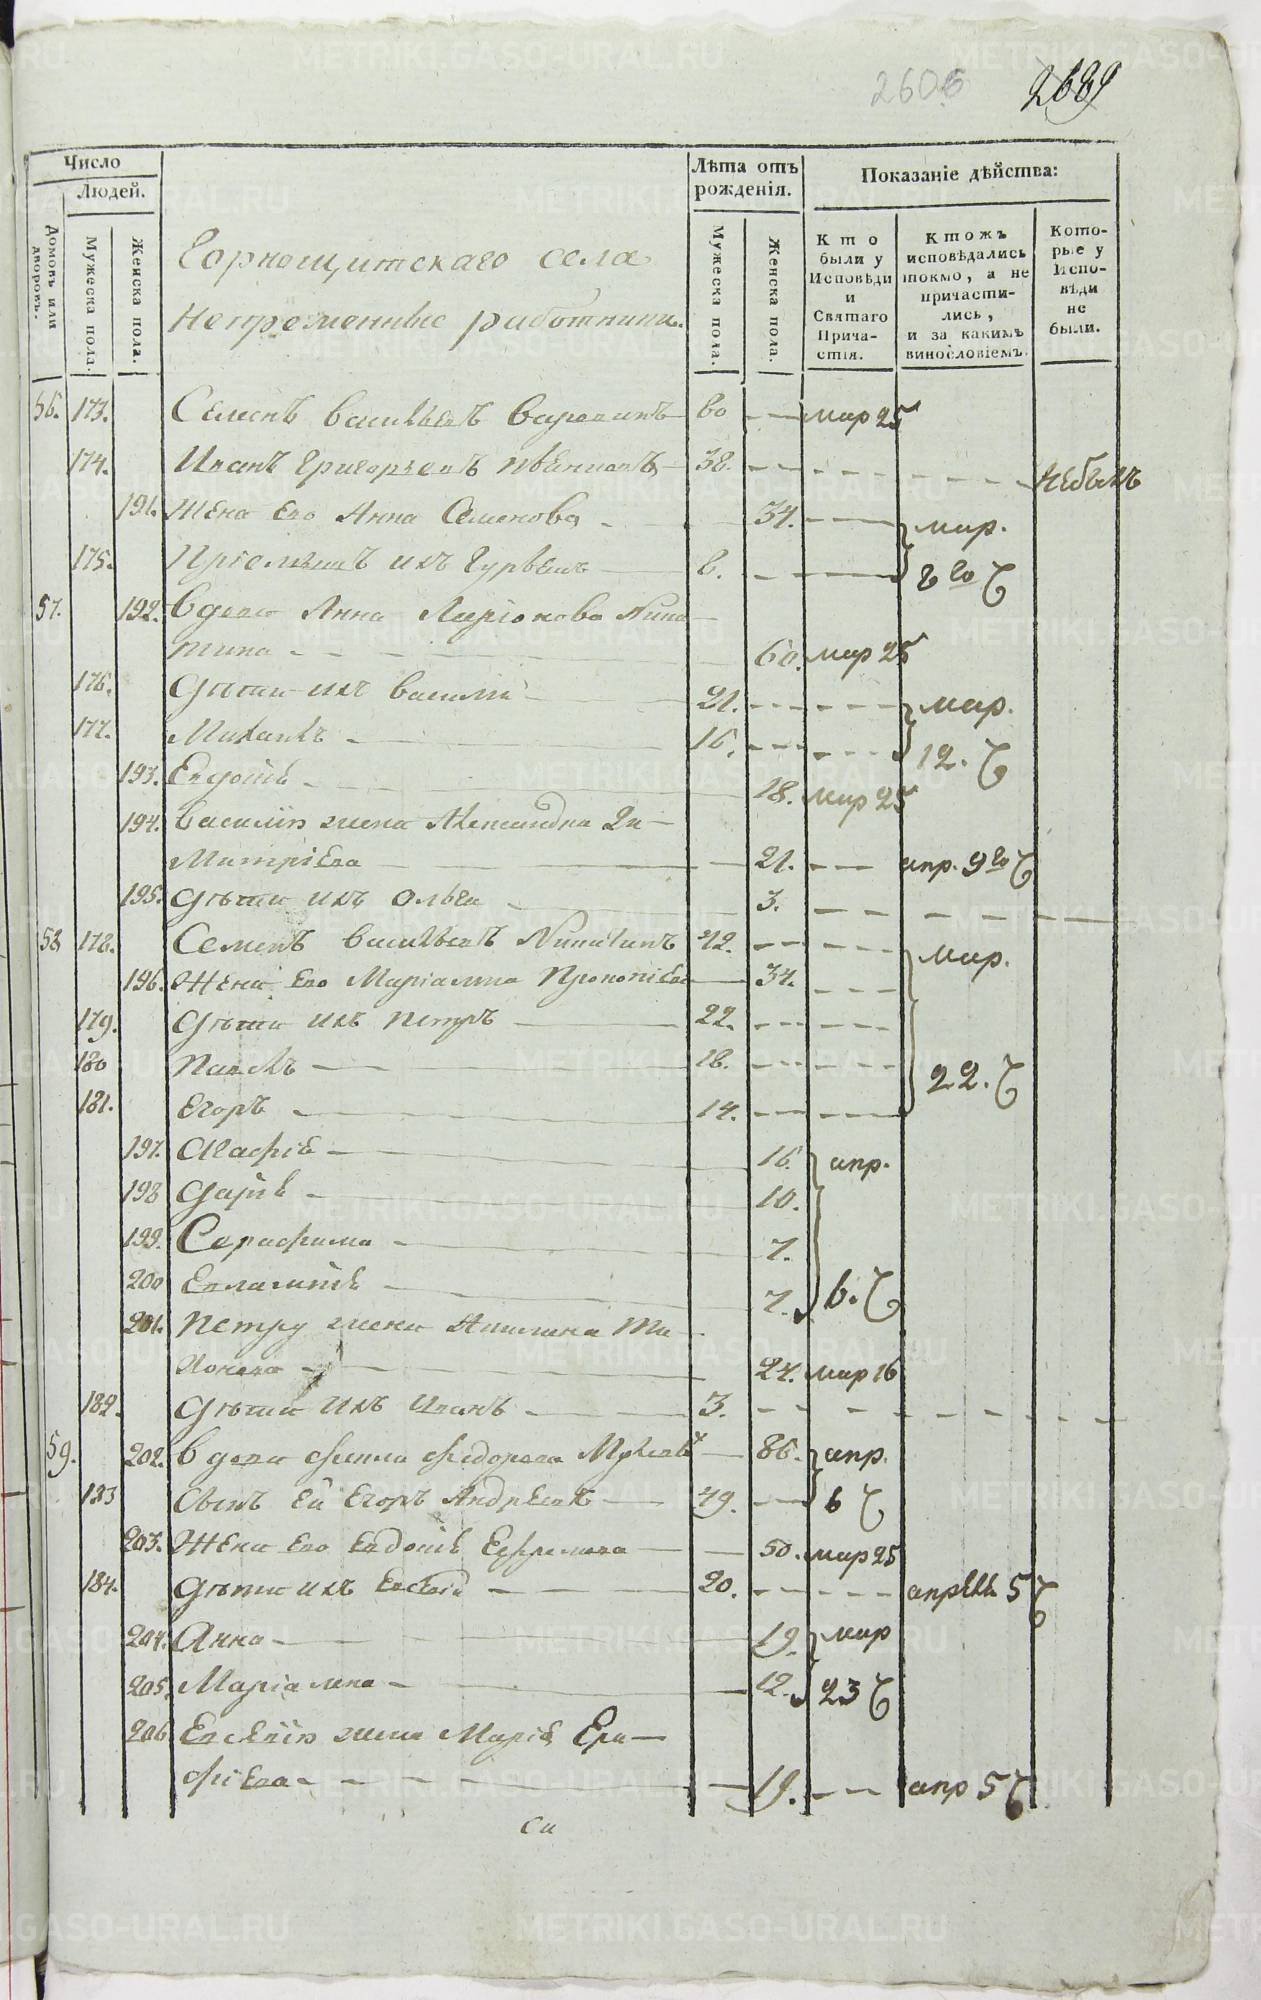 2606 2689
Число
Людей.
Домовъ или дворовъ.
Мужеска пола.
Женска пола.
Горнощитскаго села
Непременные работники.
Лѣта отъ рожденія.
Мужеска пола.
Женска пола.
Показаніе дѣйства:
Кто были у Исповѣди и Святаго Причастія.
Ктожъ исповѣдались токмо, а не причастились, и за какимъ винословіемъ.
Которые у Исповѣди не были.
56. 173. Семенъ Васильевъ 60 мар 25
174. Иванъ Григорьевъ 38. небылъ
191. Жена Его Анна Семенова 34. мар.
175. Пріемышъ ихъ 8.
57. 192. Вдова Анна Ларіонова Ники
тина 60. мар 25
176. Дѣти ихъ Василій 21. мар.
177. Михаилъ 16. 12.
193. Евдокія 18. мар 25
194. Василія жена Александра Ди
митріева 21. апр. 9го
195. Дѣти ихъ Ольга 3.
58 178. Семенъ Васильевъ Никитинъ 42. мар.
196. Жена Его Маріамна Прокопіева 34.
179. Дѣти ихъ Петръ 22.
180 Павелъ 18. 22.
181. Егоръ 14.
197. Агафія 16. апр.
198 Дарія 10.
199. Серафима 7.
200 Евлампія 7. 6.
201. Петру жена Акилина Ти
хонова 24. мар 16
182. Дѣти Ихъ Иванъ 3.
59. 202. Вдова Фекла Федорова 86. апр.
183 Сынъ Ей Егоръ Андреевъ 49. 6
203. Жена Его Евдокія Ефремова 50. мар 25
184. Дѣти ихъ Евсевій 20. апрель 5
204. Анна 19. мар
205. Маріамна 12. 23
206 Евсевія жена Марія Ера
фіева 19. апр 5
METRIKI.GASO-URAL.RU